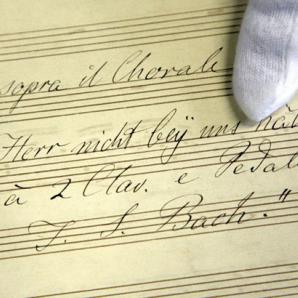 sopra il Chorale
Herr nicht beÿ uns hät
à 2 Clav. e Pedal
J. S. Bach."